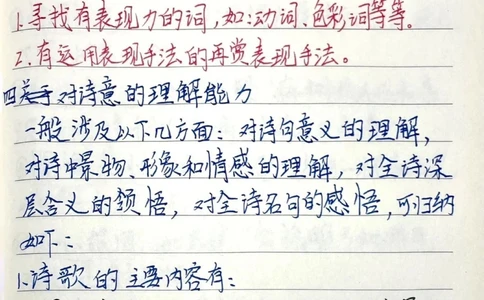 1.寻找有表现力的词,如:动词、色彩词等等。
2.有运用表现手法的再赏表现手法。
四关于对诗意的理解能力
一般涉及以下几方面:对诗句意义的理解,
对诗中景物、形象和情感的理解,对全诗深
层含义的领悟,对全诗名句的感悟,可归纳
如下:
1.诗歌的主要内容有: